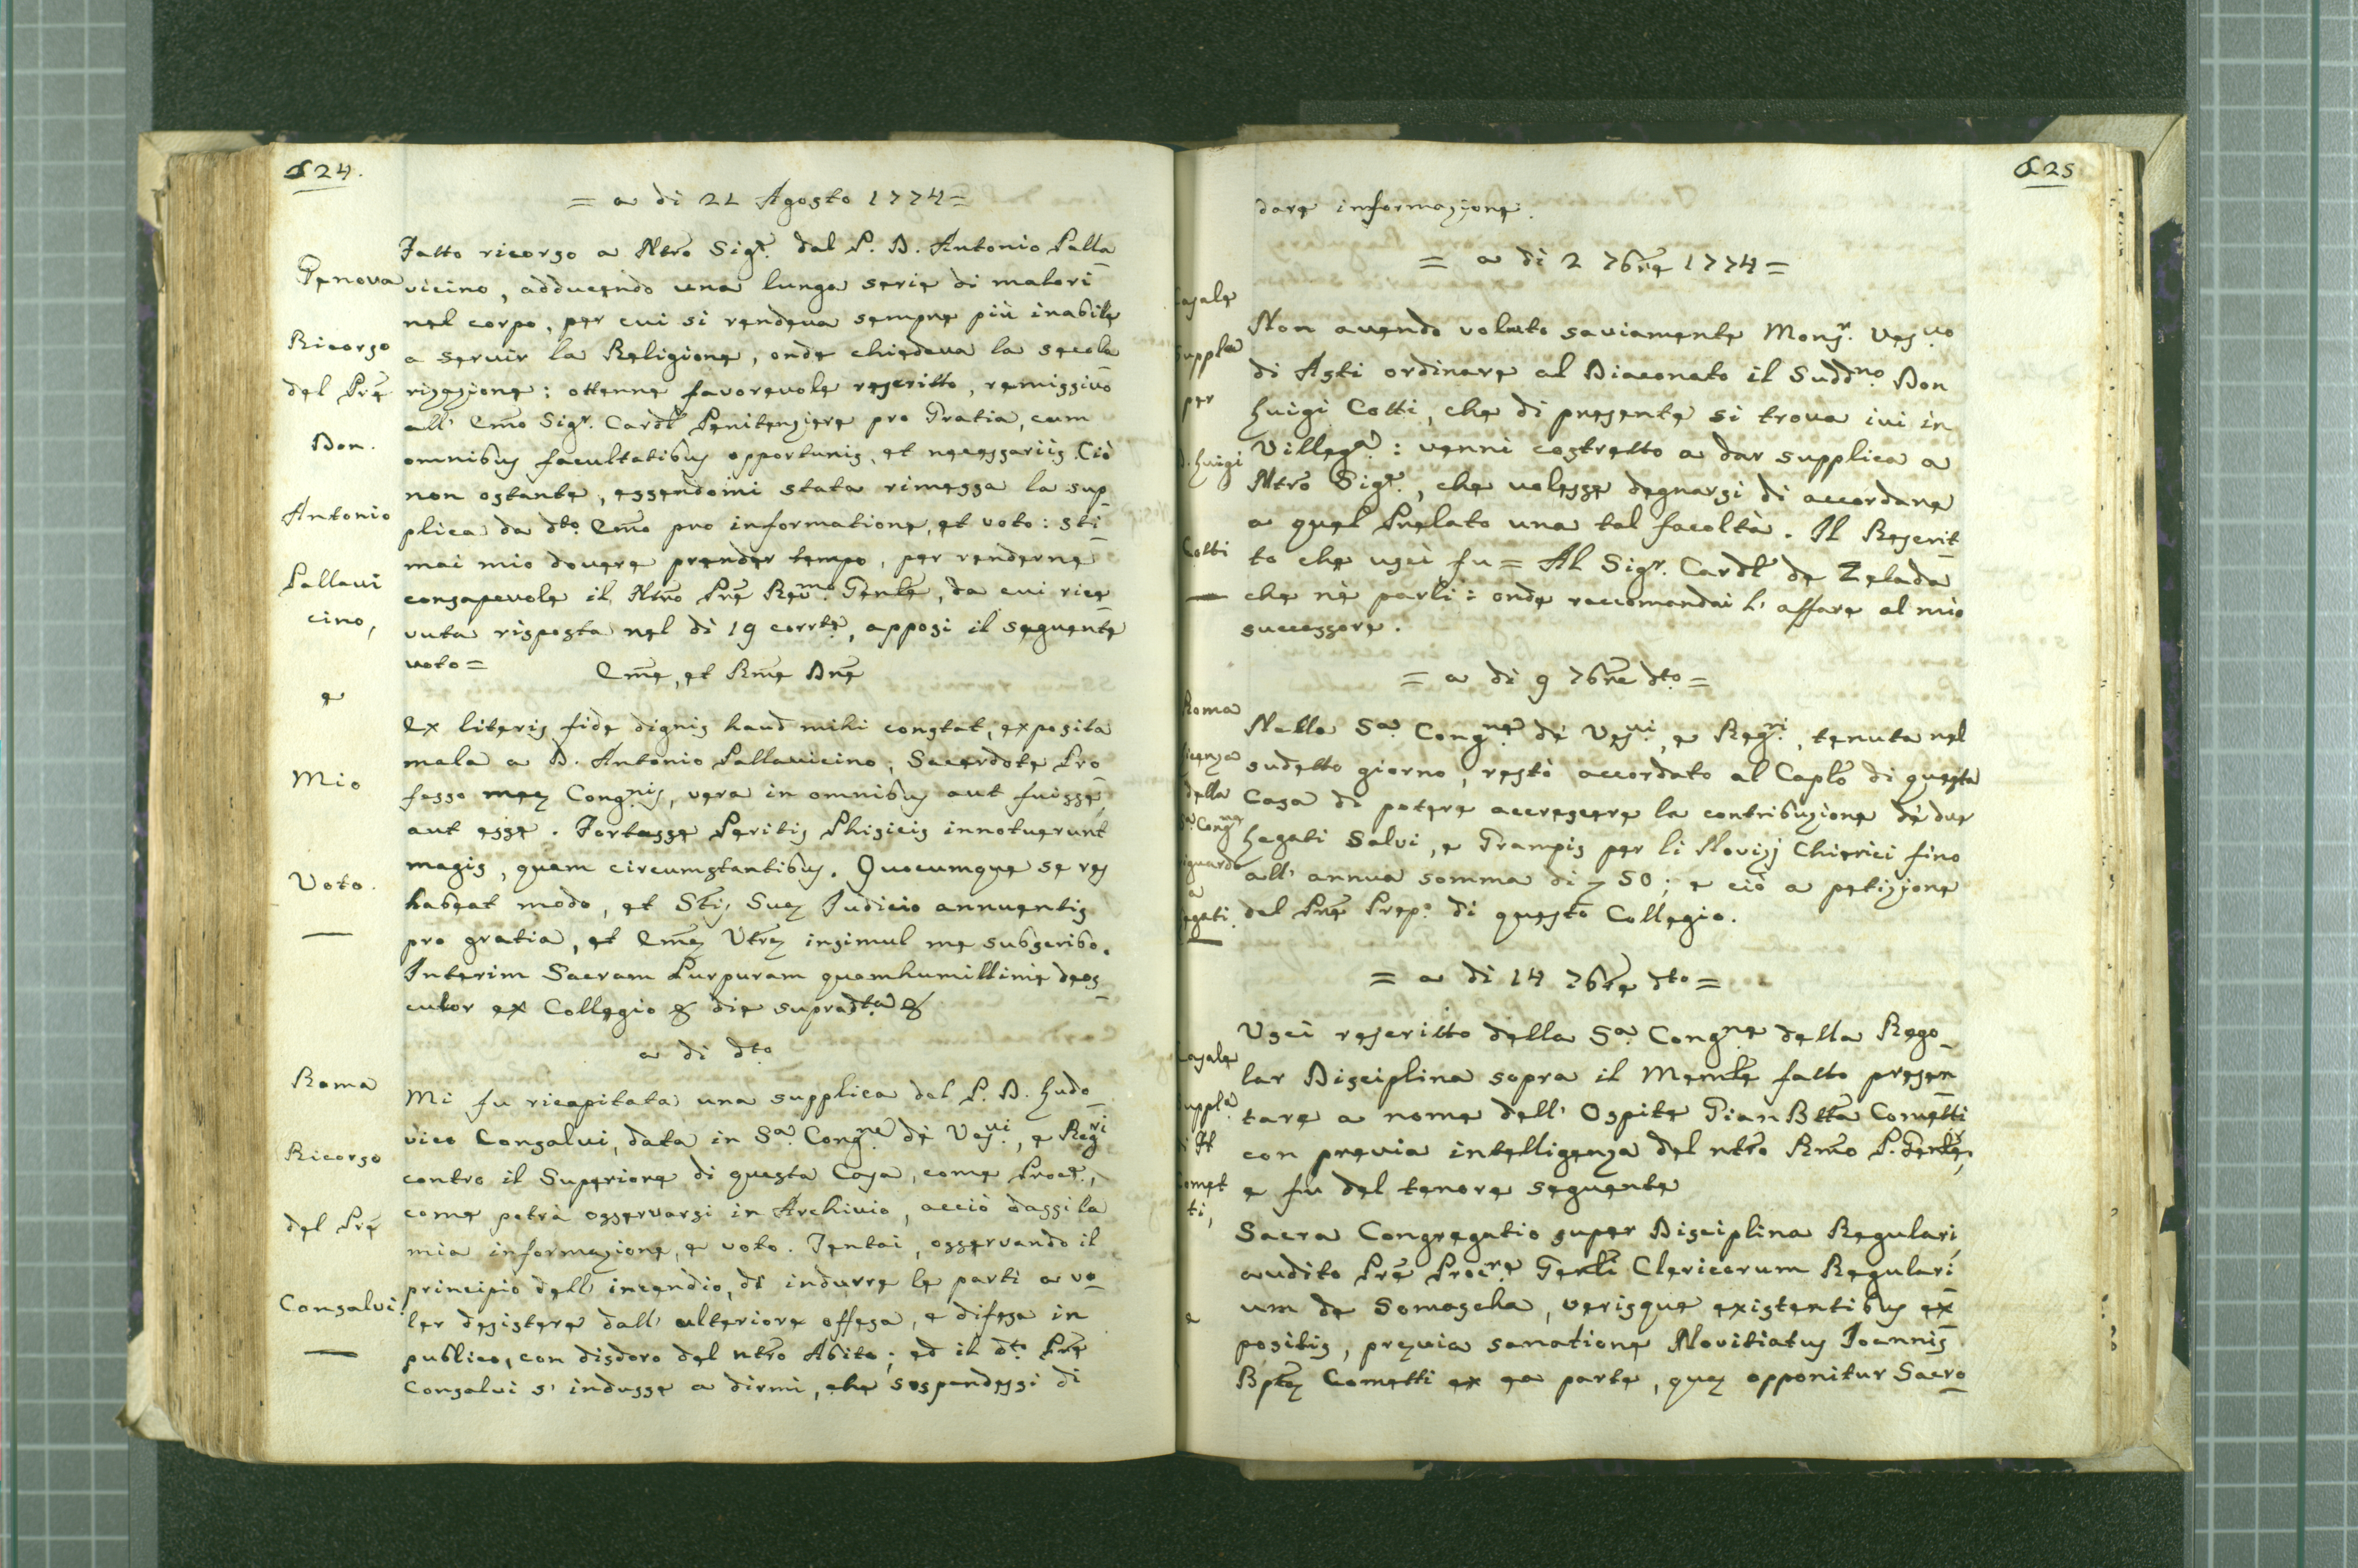 624.
= a di 21 Agosto 1774 =
Genova
Ricorso
del Prẽ
Don.
Antonio
Pallavi
cino,
e
Mio
Voto.
Fatto ricorso a Ntrõ Sigr̃. dal P. D. Antonio Palla
vicino, adducendo una lunga serie di malori
nel corpo, per cui si rendeva sempre più inabile
a servir la Religione, onde chiedeva la secola
rizazione: ottenne favorevole rescritto, remissivo
all' Em̃o Sigr. Cardl̃ Penitenziere pro Gratia, cum
omnibus facultatibus opportunis, et necessariis. Ciò
non ostante, essendomi stata rimessa la sup
plica da dto. Em̃o pro informatione, et voto: sti
mai mio dovere prender tempo, per renderne
consapevole il Ntrõ Prẽ Revmo. Genle, da cui rice
vuta risposta nel di 19 corrte, apposi il seguente
voto =
Em̃e, et Rm̃e Dnẽ
Ex literis fide dignis haud mihi constat, exposita
mala a D. Antonio Pallavicino, Sacerdote Pro
fesso meę Congnis, vera in omnibus aut fuisse,
aut esse. Fortasse Peritis Phisicis innotuerunt
magis, quam circumstantibus. Quocumque se res
habeat modo, et Stĩs Suę Judicio annuentis
pro gratia, et Em̃ę Vtrę insimul me subscribo.
Interim Sacram Purpuram quamhumillime deos
culor ex Collegio & die supradta. &
a di dto
Roma
Ricorso
del Prẽ
Consalvi.
Mi fu ricapitata una supplica del P. D. Ludo
vico Consalvi, data in Sa. Congne de' Vesvi., e Regri
contro il Superiore di questa Casa, come Procr̃.,
come potrà osservarsi in Archivio, acciò dassi la
mia informazione, e voto. Tentai, osservando il
principio dell' incendio, di indurre le parti a vo
ler desistere dall' ulteriore offesa, e difesa in
publico, con disdoro del ntrõ Abito; ed il dto. Prẽ
Consalvi s' indusse a dirmi, che sospendessi di
625
dare informazione.
= a di 2 7brẽ 1774 =
Casale
Suppla
per
D. Luigi
Cotti
Non avendo voluto saviamente Monsr. Vesvo
di Asti ordinare al Diaconato il Suddno. Don
Luigi Cotti, che di presente si trova ivi in
Villega.: venni costretto a dar supplica a
Ntrõ Sigr̃., che volesse degnarsi di accordare
a quel Prelato una tal facoltà. Il Rescrit
to che uscì fu = Al Sigr. Cardl̃ de Zelada
che nè parli: onde raccomandai l' affare al mio
successore.
= a di 9 7brẽ dto. =
Roma
licenza
della
Sa. Congne
riguardo
a
legati.
Nella Sa. Congne. dè Vesvi., e Regri., tenuta nel
sudetto giorno, restò accordato al Caplõ di questa
Casa di potere accrescere la contribuzione dè due
Legati Salvi, e Grampis per li Novizj Chierici fino
all' annua somma di 50; e ciò a petizione
del Prẽ Prepo. di questo Collegio.
= a di 14 7brẽ dto =
Casale
Suppla
di
Comet
ti,
e
Uscì rescritto della Sa. Congne della Rego
lar Disciplina sopra il Memle fatto presen
tare a nome dell' Ospite Gian Btta Cometti
con previa intelligenza del ntrõ Rm̃o P. Genle,
e fu del tenore seguente
Sacra Congregatio super Disciplina Regulari,
audito Prẽ Procre Genli Clericorum Regulari
um de Somascha, verisque existentibus ex
positis, pręvia sanatione Novitiatus Joannis
Bptę Cometti ex ea parte, quę opponitur Sacro